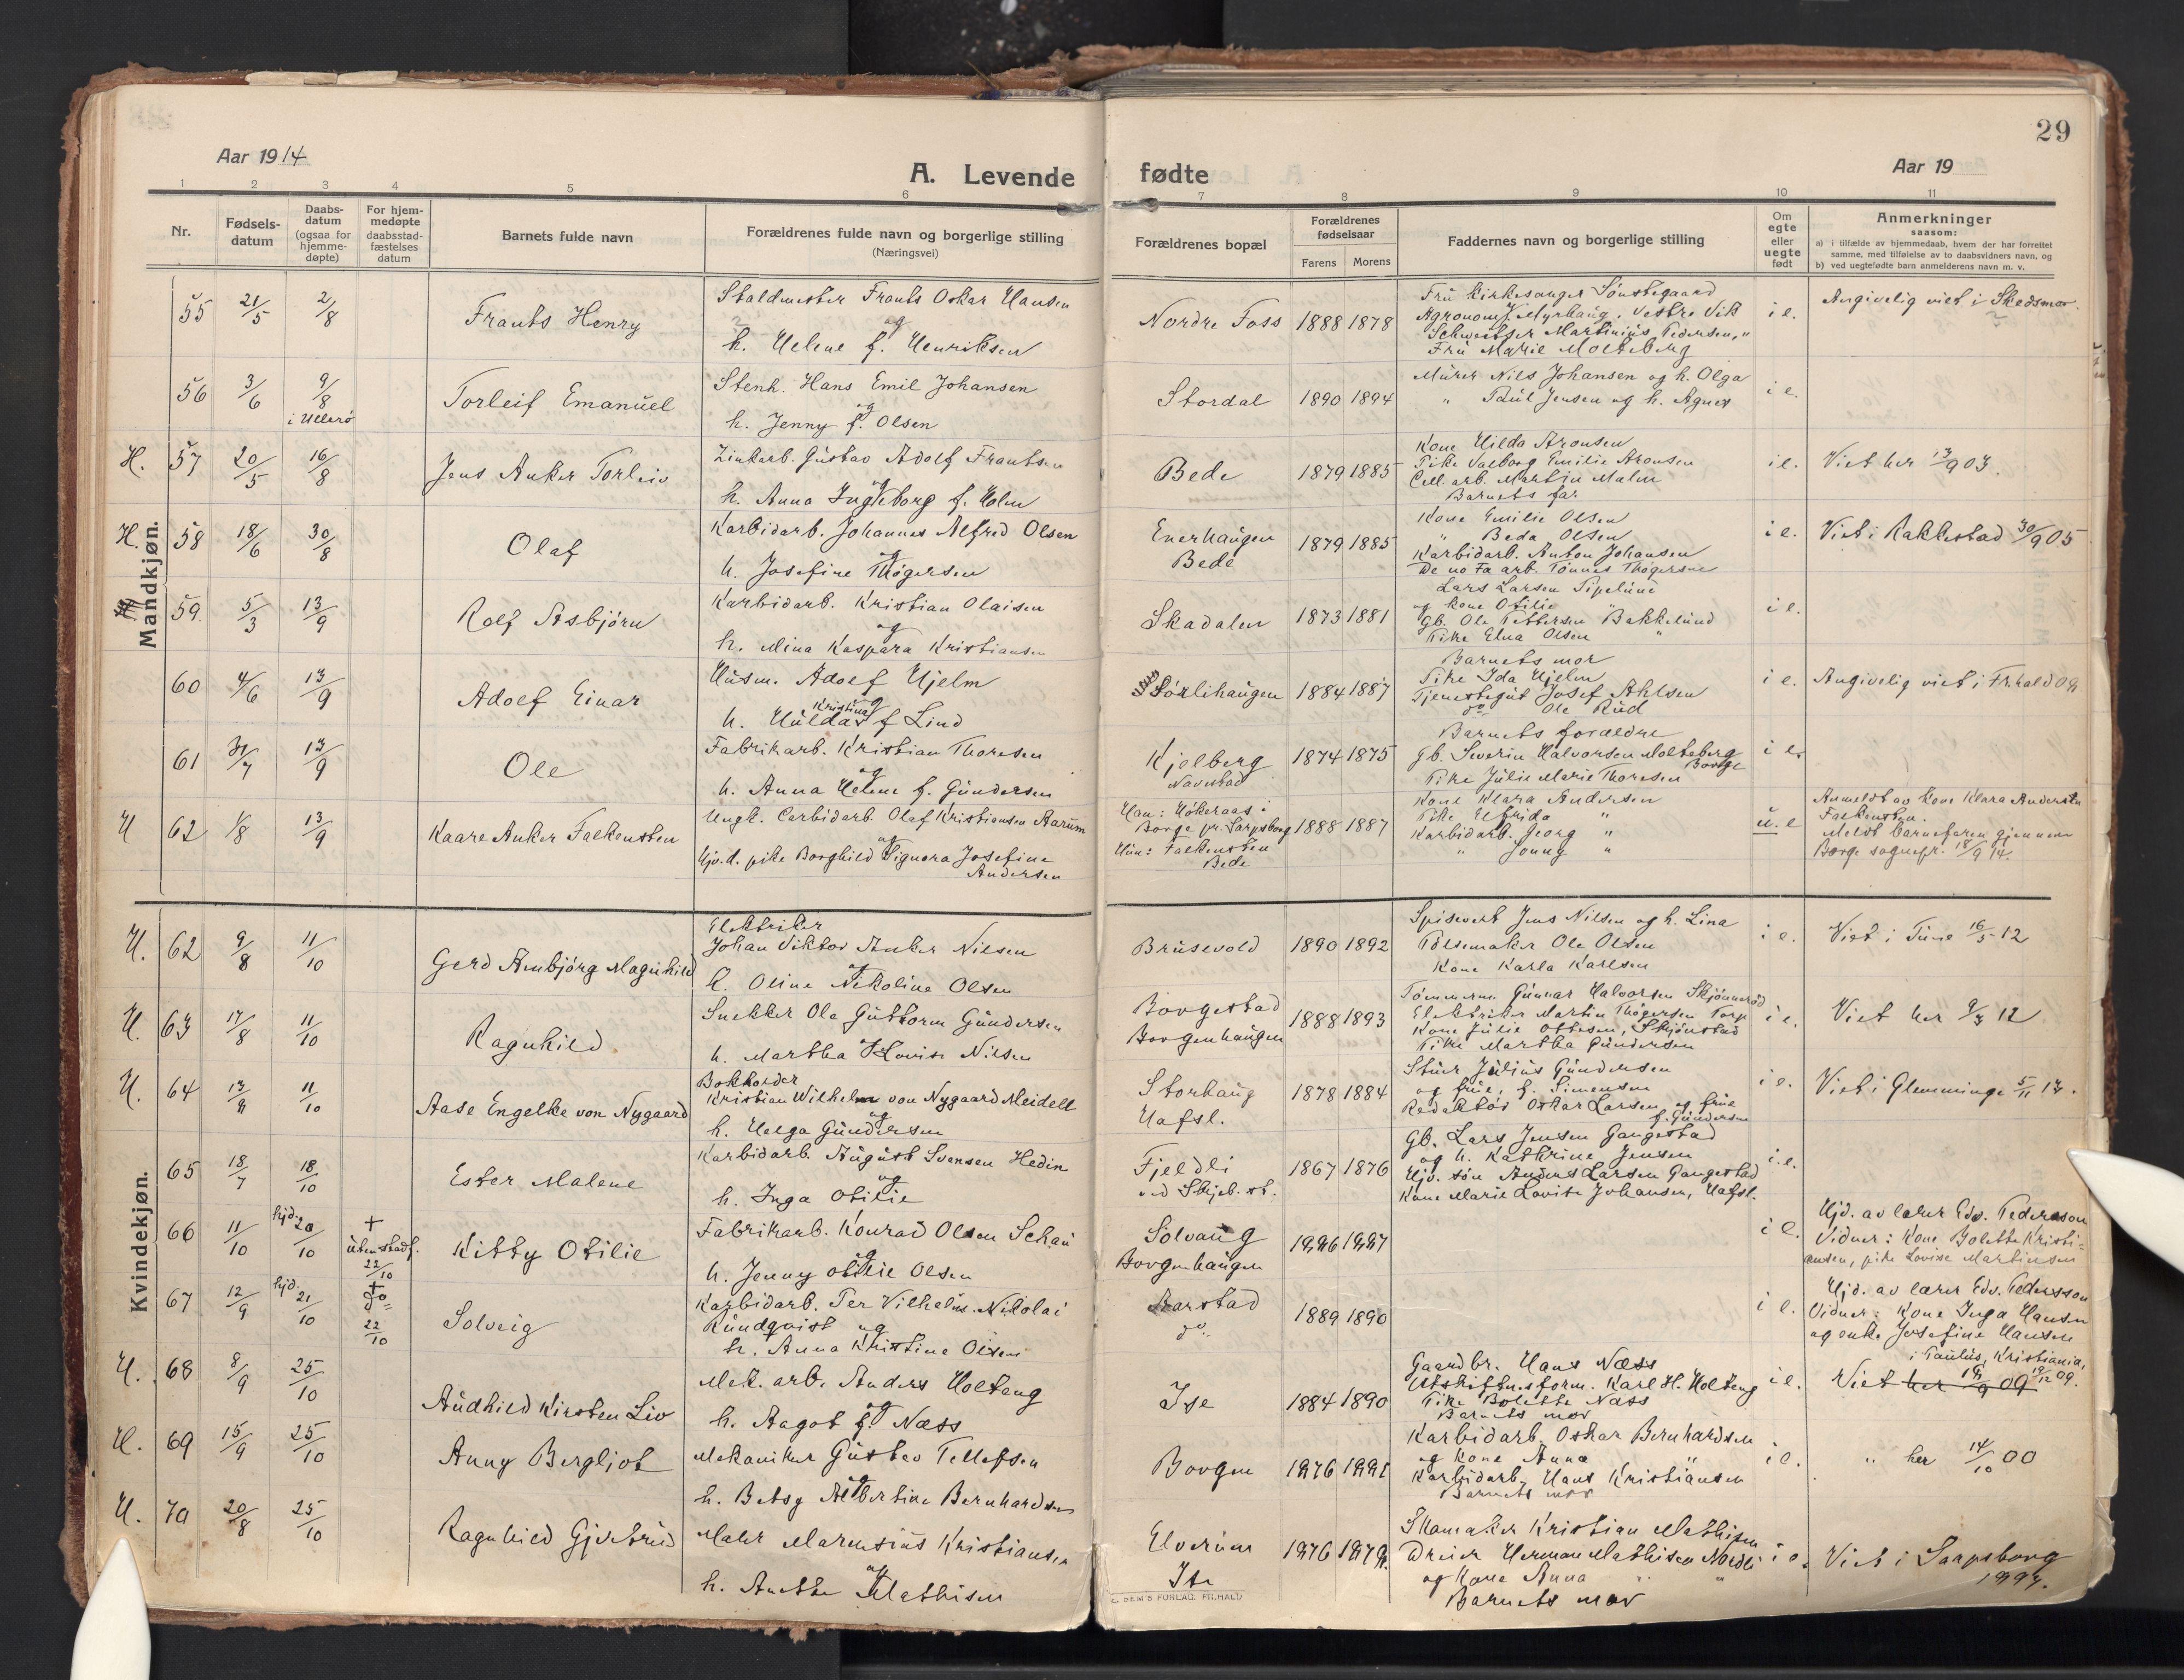 29
Aar 1914
A. Levende fødte
Aar 19
1 2 3 4 5 6 7 8 9 10 11
Nr.
Fødsels-
datum
Daabs-
datum
(ogsaa for
hjemme-
døpte)
For hjem-
medøpte
daabsstad-
fæstelses
datum
Barnets fulde navn
Forældrenes fulde navn og borgerlige stilling
(Næringsvei)
Forældrenes bopæl
Forældrenes
fødselsaar
Farens Morens
Faddernes navn og borgerlige stilling
Om
egte
eller
uegte
født
Anmerkninger
saasom:
a) i tilfælde av hjemmedaab, hvem der har forrettet
samme, med tilføielse av to daabsvidners navn, og
b) ved uegtefødte barn anmelderens navn m. v.
Mandkjøn.
55 21/5 2/8
Frants Henry
Staldmester Frants Oskar Hansen
og
h. Helene f. Henriksen
Nordre Foss 1888 1878
Fru Kirkesanger Sønstegaard
Agronom Myrhaug, Vestre Vik
Schweitser Martinius Pedersen, "
Fru Marie Molteberg
i e.
Angivelig viet i Skedsmo
56 3/6 9/8
i Ullerø
Torleif Emanuel
Stenh. Hans Emil Johansen
og
h. Jenny f. Olsen
Stordal 1890 1894
Murer Nils Johansen og h. Olga
" Paul Jensen og h. Agnes
i e.
H. 57 20/5 16/8
Jens Anker Torleiv
Zinkarb. Gustav Adolf Frantsen
og
h. Anna Ingeborg f. Holm
Bede 1879 1885
Kone Hilda Aronsen
Pike Valborg Emilie Aronsen
Cell. arb. Martin Malm
Barnets far
i e.
Viet her 13/9 03.
H. 58 18/6 30/8
Olaf
Karbidarb. Johannes Alfred Olsen
og
h. Josefine Thøgersen
Enerhaugen
Bede
1879 1885
Kone Emilie Olsen
" Beda Olsen
Karbidarb. Anton Johansen
De no Fa arb. Tønnes Thøgersen
i e.
Viet i Rakkestad 30/9 05
59. 5/3 13/9
Rolf Asbjørn
Karbidarb. Kristian Olaisen
og
h. Mina Kaspara Kristiansen
Skadalen 1873 1881
Lars Larsen Pipelune
og kone Otilie "
Gb. Ole Pettersen Bakkelund
Pike Elna Olsen "
i e.
60 4/6 13/9
Adolf Einar
Husm. Adolf Hjelm
og
h. Hulda Kristina f Lind
Sørlihaugen 1884 1887
Barnets mor
Pike Ida Hjelm
Tjenestegut Josef Ahlsen
do Ole Rud
i e.
Angivelig viet i Fr.hald 09
61 31/7 13/9
Ole
Fabrikarb. Kristian Thoresen
og
h. Anna Helene f. Gundersen
Kjølberg
Navestad
1874 1875
Barnets forældre
Gb. Severin Halvorsen Molteberg
Borge
Pike Julie Marie Thoresen
i e.
H 62 1/8 13/9
Kaare Anker Falkensten
Ungk. Carbidarb. Olaf Kristiansen Aarum
og
Hjv.d. pike Borghild Signora Josefine
Andersen
Han: Høkeraas i
Borge pr. Sarpsborg
Hun: Falkensten
Bede
1888 1887
Kone Klara Andersen
Pike Elfrida "
Karbidarb. Georg "
" Jonny "
u. e
Anmeldt av kone Klara Andersen
Falkensten.
Meldt barnefaren gjennem
Borge sognepr. 18/9 14.
Kvindekjøn.
H. 62 9/8 11/10
Gerd Annbjørg Magnhild
Elektriker
Johan Viktor Anker Nilsen
og
h. Oline Nikoline Olsen
Brusevold 1890 1892
Spisevert Jens Nilsen og h. Lina
Pølsemaker Ole Olsen
Kone Karla Karlsen
i e.
Viet i Tune 16/5 12
H. 63 17/8 11/10
Ragnhild
Snekker Ole Guttorm Gundersen
og
h. Martha Lovise Nilsen
Borgestad
Borgenhaugen
1888 1893
Tømmerm. Gunnar Halvorsen Skjønnerød
Elektriker Martin Thøgersen Torp
Kone Julie Ottesen, Skjønstad
Pike Martha Gundersen
i e.
Viet her 9/3 12
H. 64 13/8 11/10
Aase Engelke von Nygaard
Bokholder
Kristian Wilhelm von Nygaard Meidell
og
h. Helga Gundersen
Storhaug
Hafsl.
1878 1884
Stuer Julius Gundersen
og frue, f. Simensen
Redaktør Oskar Larsen og frue
f. Gundersen
i e.
Viet i Glemminge 5/11 13.
65 18/7 18/10
Ester Malene
Karbidarb. August Svensen Hedin
og
h. Inga Otilie
Fjeldli
ved Skjeb. st.
1867 1876
Gb. Lars Jensen Gangestad
og h. Kathrine Jensen
Hjv. søn Anders Larsen Gangestad
Kone Marie Lovise Johansen, Hafsl.
i e.
66 11/10 hjd. 20/10 +
uten stadf.
22/10
Kitty Otilie
Fabrikarb. Konrad Olsen Schau
og
h. Jenny Otilie Olsen
Solvang
Borgenhaugen
1886 1887
i e.
Hjd. av lærer Edv. Pedersson
Vidner: Kone Bolette Kristi-
ansen, pike Lovise Martinsen
67 12/9 hjd. 21/10 +
do
22/10
Solveig
Karbidarb. Per Vilhelm Nikolai
Rundqvist og
h. Anna Kristine Olsen
Aarstad
do
1889 1890
i e.
Hjd. av lærer Edv. Pedersson
Vidner: Kone Inga Hansen
og enke Josefine Hansen
H. 68 8/9 25/10
Audhild Kirsten Liv
Mek. arb. Anders Holteng
og
h. Aagot f. Næss
Ise 1884 1890
Gaardbr. Hans Næss
Utskiftn.sform. Karl H. Holteng
Pike Bolette Næss
Barnets mor
i e.
i Paulus, Kristiania,
Viet her 09 19/12 09.
H. 69 15/9 25/10
Anny Bergljot
Mekaniker Gustav Tellefsen
og
h. Betsy Albertine Bernhardsen
Borgen 1876 1881
Karbidarb. Oskar Bernhardsen
og kone Anna "
Karbidarb. Hans Kristiansen
Barnets mor
i e.
" her 14/10 00
H. 70 20/8 25/10
Ragnhild Gjertrud
Maler Marensius Kristiansen
og
h. Anette Mathisen
Elverum
Ise
1876 1879.
Skomaker Kristian Mathisen
Dreier Herman Mathisen Nordli
og kone Anna " "
Barnets mor
i e.
Viet i Sarpsborg
1897.
SEM'S FORLAG. FR.HALD